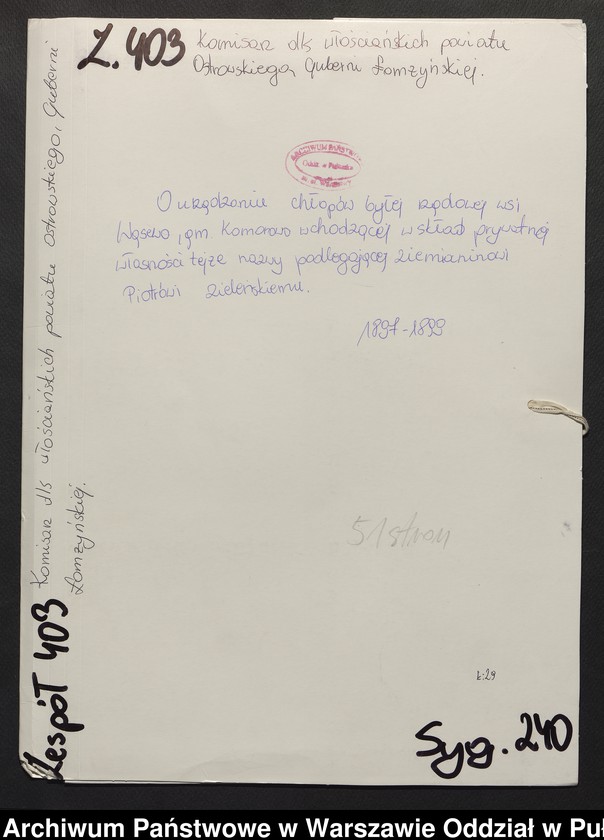 Z. 403 Komisarz dls włościańskich powiatu
Ostrowskiego, Guberni Łomżyńskiej.
ARCHIWUM PAŃSTWOWE
Oddz. w Pułtusku
O urządzenie chłopów byłej rządowej wsi
Wąsewo, gm. Komorowo wchodzącej w skład prywatnej
własności tejże nazwy podlegającej ziemianinowi
Piotrowi Zielenskiemu.
1897-1899
51 stron
k:29
Syg. 240
Zespół 403 Komisarz dls włościańskich powiatu Ostrowskiego, Guberni
Łomżyńskiej.
Archiwum Państwowe w Warszawie Oddział w Puł